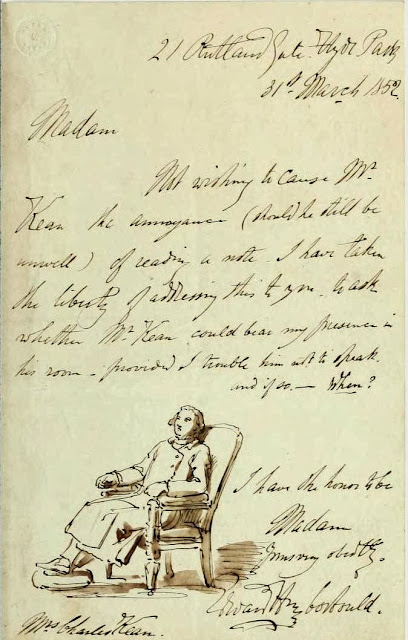 21 Rutland Gate. Hyde Park
31st March 1852.
Madam
Not wishing to cause Mr.
Kean the annoyance (should he still be
unwell) of reading a note. I have taken
the liberty of addressing this to you. to ask
whether Mr. Kean could bear my presence in
his room - provided I trouble him not to speak.
and if so. — When?
I have the honor to be
Madam
Yours very obedtly.
Edward Hy Corbould.
Mrs Charles Kean.